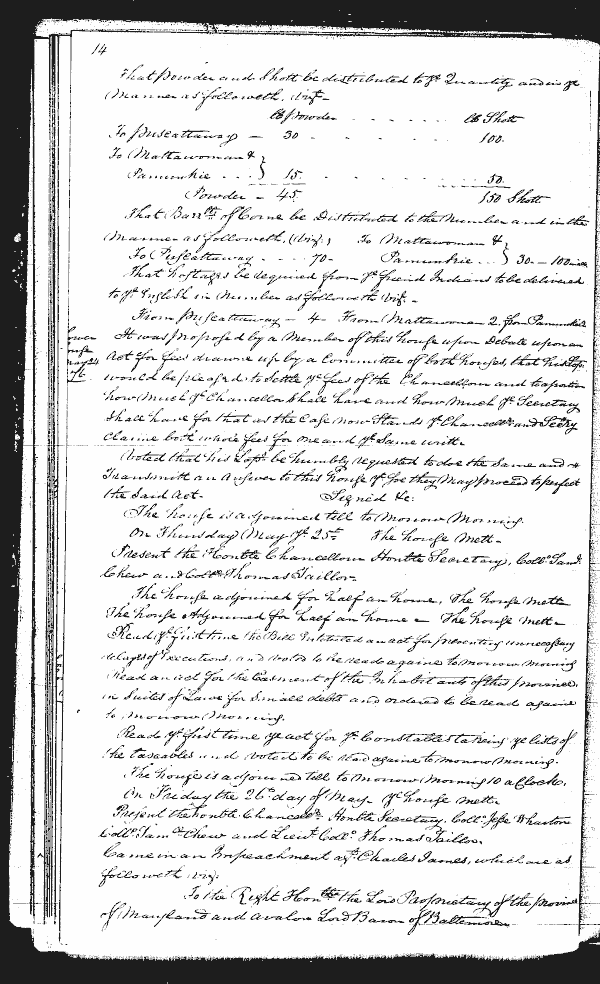 14
That powder and Shott be distributed to ye Quantity and in ye
Manner as followeth, viz.-
lb powder - - - - - lb Shott
To puscattaway - 30 - - - - - 100.
To Mattawoman &
Pamunkie - - - } 15. - - - - 50.
Powder - 45. 150 Shott
That Barrlls of Corne be Distributed to the Number and in the
Manner as followeth, (viz.) To Mattawoman &
To Puscattaway - - - 70- Pamunkie - - } 30.- 100
That hostages be required from ye freind Indians to be delivered
to ye English in Number as followeth viz. -
From puscattaway - 4 - From Mattawoman 2. from Pamunkie
Lower
house
May 24
It was proposed by a Member of this house upon Debate upon an
Act for fees drawne up by a Committee of both houses, that his Lopp
would be pleased to Settle ye fees of the Chancellour and
how much ye Chancellor shall have and how much ye Secretary
shall have for that as the Case now Stands ye Chancellr and Secry
claime both whole fees for one and ye Same writt.
Voted that his Lopp be humbly requested to doe the Same and
Transmitt an Answer to this house yt Soe they May proceed to perfect
the Said Act. Signed &c:
The house is adjourned till to Morrow Morning.
On Thursday May ye 25th The house Mett-
Present the Honble Chancellour Honble Secretary, Collo Saml
Chew and Collo Thomas Taillor.
The house adjourned for half an houre, The house Mett-
The house Adjourned for half an houre - The house Mett-
Read ye first time the Bill Intituled an act for preventing unnecessary
delayes of Executions, and voted to be read againe to morrow morning
Read an act for the Easment of the Inhabitants of this province
in Suites of Lawe for Small debts and ordered to be read againe
to morrow Morning.
Read ye first time ye act for ye Constables takeing ye lists of
the taxeables and voted to be read againe to morrow morning.
The house is adjourned till to Morrow Morning 10 a Clock.
On Friday the 26th day of May - ye house Mett-
Present the honble Chancellr Honble Secretary. Collo Jesse Wharton
Collo Samll Chew and Lieut Collo Thomas Taillor.
Came in an Impeachment agt Charles James, which are as
followeth viz.
To the Right Honble the Lord Proprietary of the province
of Maryland and Avalon Lord Baron of Baltemore